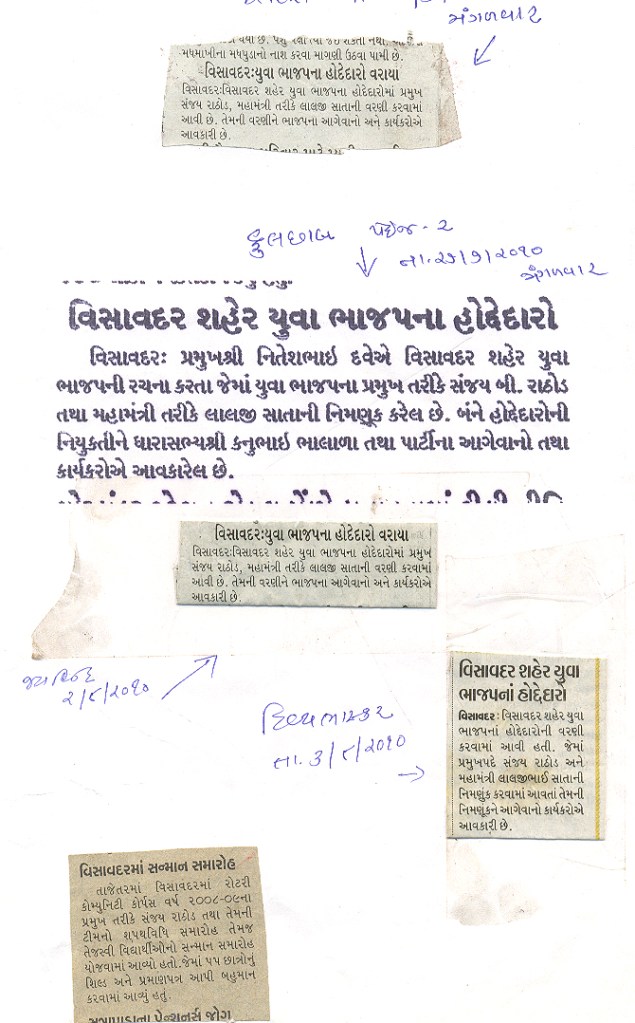 મંગળવાર
મધમાખીના મધપુડાનો નાશ કરવા માગણી ઉઠવા પામી છે.
વિસાવદર:યુવા ભાજપના હોદેદારો વરાયા
વિસાવદર:વિસાવદર શહેર યુવા ભાજપના હોદેદારોમાં પ્રમુખ
સંજય રાઠોડ, મહામંત્રી તરીકે લાલજી સાતાની વરણી કરવામાં
આવી છે. તેમની વરણીને ભાજપના આગેવાનો અને કાર્યકરોએ
આવકારી છે.
ફુલછાબ પેઈજ - ૨
તા. ૨૭/૭/૨૦૧૦
મંગળવાર
વિસાવદર શહેર યુવા ભાજપના હોદેદારો
વિસાવદર: પ્રમુખશ્રી નિતેશભાઇ દવેએ વિસાવદર શહેર યુવા
ભાજપની રચના કરતા જેમાં યુવા ભાજપના પ્રમુખ તરીકે સંજય બી. રાઠોડ
તથા મહામંત્રી તરીકે લાલજી સાતાની નિમણૂક કરેલ છે. બંને હોદેદારોની
નિયુકતીને ધારાસભ્યશ્રી કનુભાઇ ભાલાળા તથા પાર્ટીના આગેવાનો તથા
કાર્યકરોએ આવકારેલ છે.
વિસાવદર:યુવા ભાજપના હોદેદારો વરાયા
વિસાવદર:વિસાવદર શહેર યુવા ભાજપના હોદેદારોમાં પ્રમુખ
સંજય રાઠોડ, મહામંત્રી તરીકે લાલજી સાતાની વરણી કરવામાં
આવી છે. તેમની વરણીને ભાજપના આગેવાનો અને કાર્યકરોએ
આવકારી છે.
જયહિન્દ
૨/૮/૨૦૧૦
દિવ્યભાસ્કર
તા. ૩/૮/૨૦૧૦
વિસાવદર શહેર યુવા
ભાજપનાં હોદ્દેદારો
વિસાવદર: વિસાવદર શહેર યુવા
ભાજપનાં હોદેદારોની વરણી
કરવામાં આવી હતી. જેમાં
પ્રમુખપદે સંજય રાઠોડ અને
મહામંત્રી લાલજીભાઈ સાતાની
નિમણુંક કરવામાં આવતાં તેમની
નિમણૂકને આગેવાનો કાર્યકરોએ
આવકારી છે.
વિસાવદરમાં સન્માન સમારોહ
તાજેતરમાં વિસાવદરમાં રોટરી
કોમ્યુનિટી કોર્પસ વર્ષ ૨૦૦૮-૦૯ના
પ્રમુખ તરીકે સંજય રાઠોડ તથા તેમની
ટીમનો શપથવિધિ સમારોહ તેમજ
તેજસ્વી વિદ્યાર્થીઓનો સન્માન સમારોહ
યોજવામાં આવ્યો હતો.જેમાં ૫૫ છાત્રોનું
શિલ્ડ અને પ્રમાણપત્ર આપી બહુમાન
કરવામાં આવ્યું હતું.
સુત્રાપાડાના પેન્શનર્સ જોગ